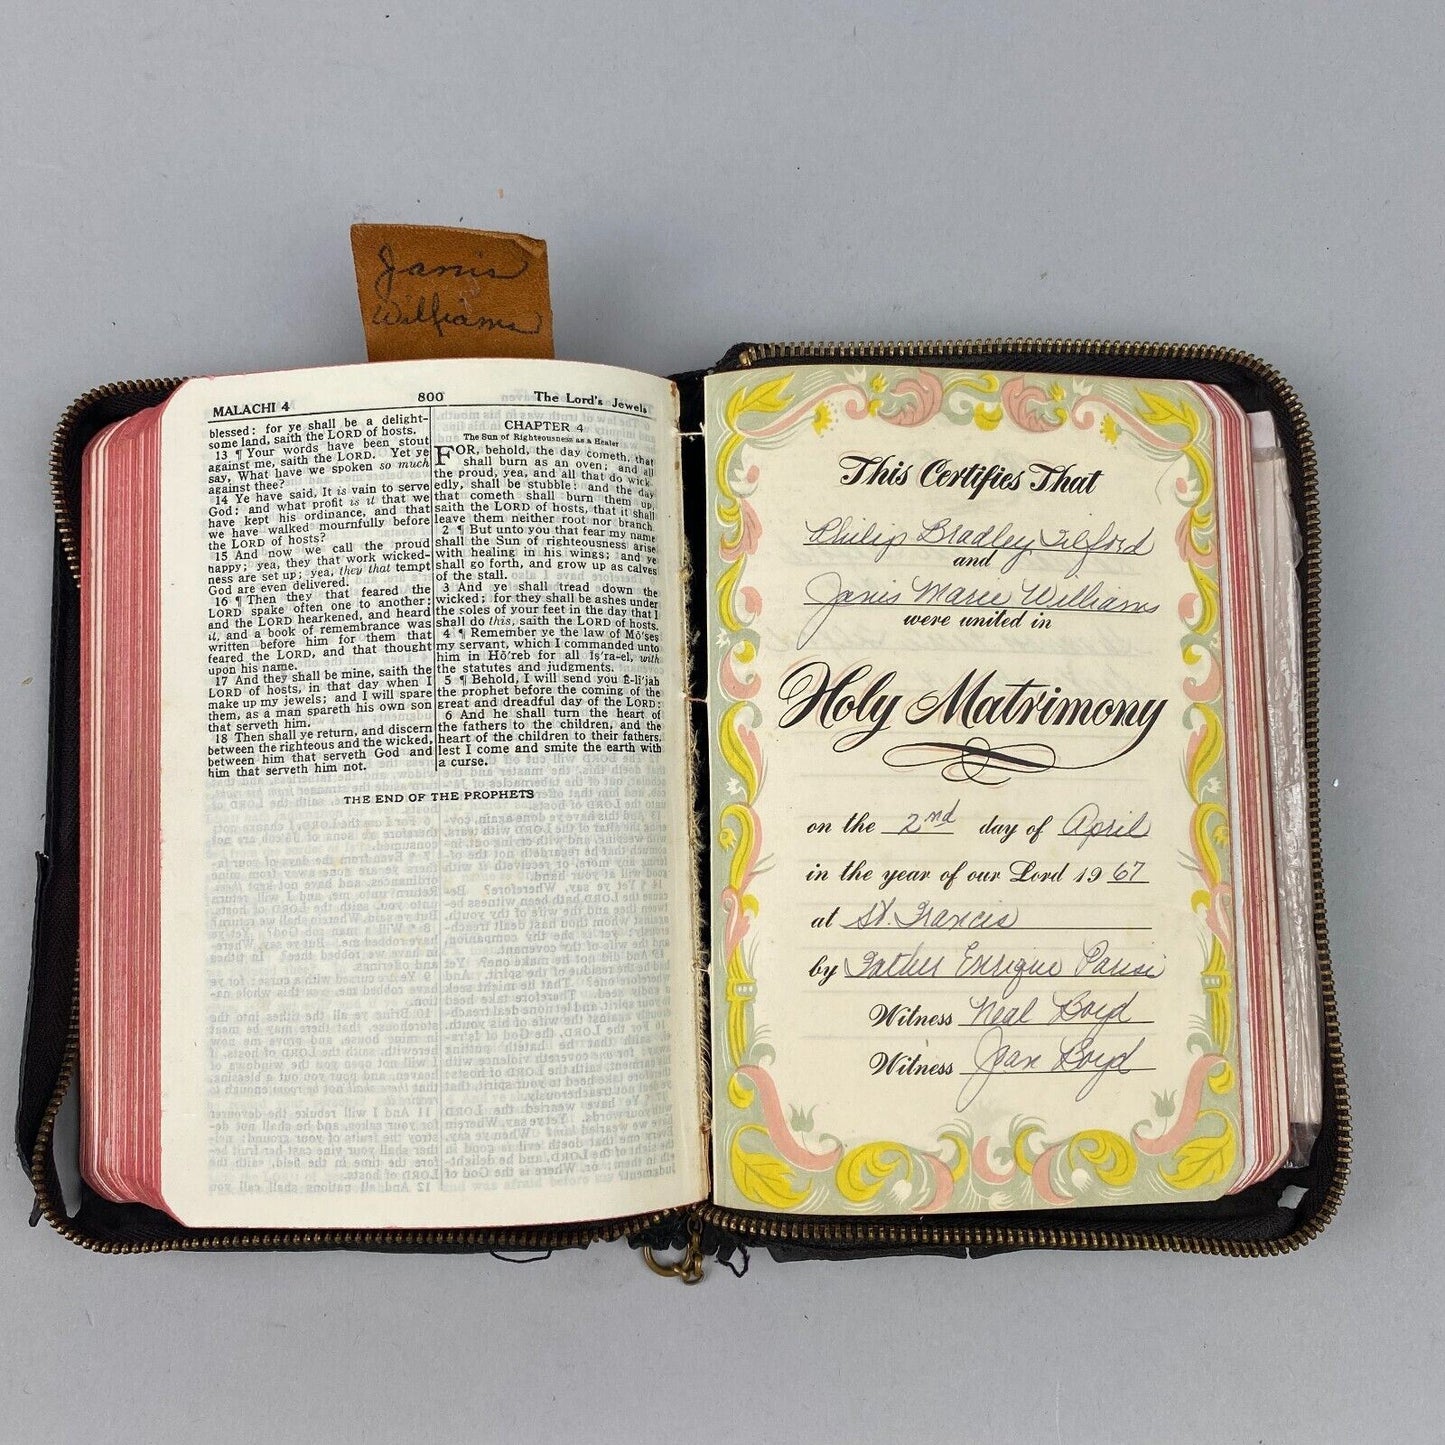 Janis
Williams
MALACHI 4
800
The Lord's Jewels
blessed: for ye shall be a delight-
some land, saith the LORD of hosts.
13 ¶ Your words have been stout
against me, saith the LORD. Yet ye
say, What have we spoken so much
against thee?
14 Ye have said, It is vain to serve
God: and what profit is it that we
have kept his ordinance, and that
we have walked mournfully before
the LORD of hosts?
15 And now we call the proud
happy; yea, they that work wicked-
ness are set up; yea, they that tempt
God are even delivered.
16 ¶ Then they that feared the
LORD spake often one to another:
and the LORD hearkened, and heard
it, and a book of remembrance was
written before him for them that
feared the LORD, and that thought
upon his name.
17 And they shall be mine, saith the
LORD of hosts, in that day when I
make up my jewels; and I will spare
them, as a man spareth his own son
that serveth him.
18 Then shall ye return, and discern
between the righteous and the wicked,
between him that serveth God and
him that serveth him not.
CHAPTER 4
The Sun of Righteousness as a Healer
FOR, behold, the day cometh, that
shall burn as an oven; and all
the proud, yea, and all that do wick-
edly, shall be stubble: and the day
that cometh shall burn them up,
saith the LORD of hosts, that it shall
leave them neither root nor branch.
2 ¶ But unto you that fear my name
shall the Sun of righteousness arise
with healing in his wings; and ye
shall go forth, and grow up as calves
of the stall.
3 And ye shall tread down the
wicked; for they shall be ashes under
the soles of your feet in the day that I
shall do this, saith the LORD of hosts.
4 ¶ Remember ye the law of Mō'ses
my servant, which I commanded unto
him in Hō'reb for all Iş'ra-el, with
the statutes and judgments.
5 ¶ Behold, I will send you Ē-lī'jah
the prophet before the coming of the
great and dreadful day of the LORD:
6 And he shall turn the heart of
the fathers to the children, and the
heart of the children to their fathers,
lest I come and smite the earth with
a curse.
THE END OF THE PROPHETS
This Certifies That
Philip Bradley Tilford
and
Janis Marie Williams
were united in
Holy Matrimony
on the 2nd day of April
in the year of our Lord 1967
at St. Francis
by Father Enrique Parisi
Witness Neal Boyd
Witness Jean Boyd